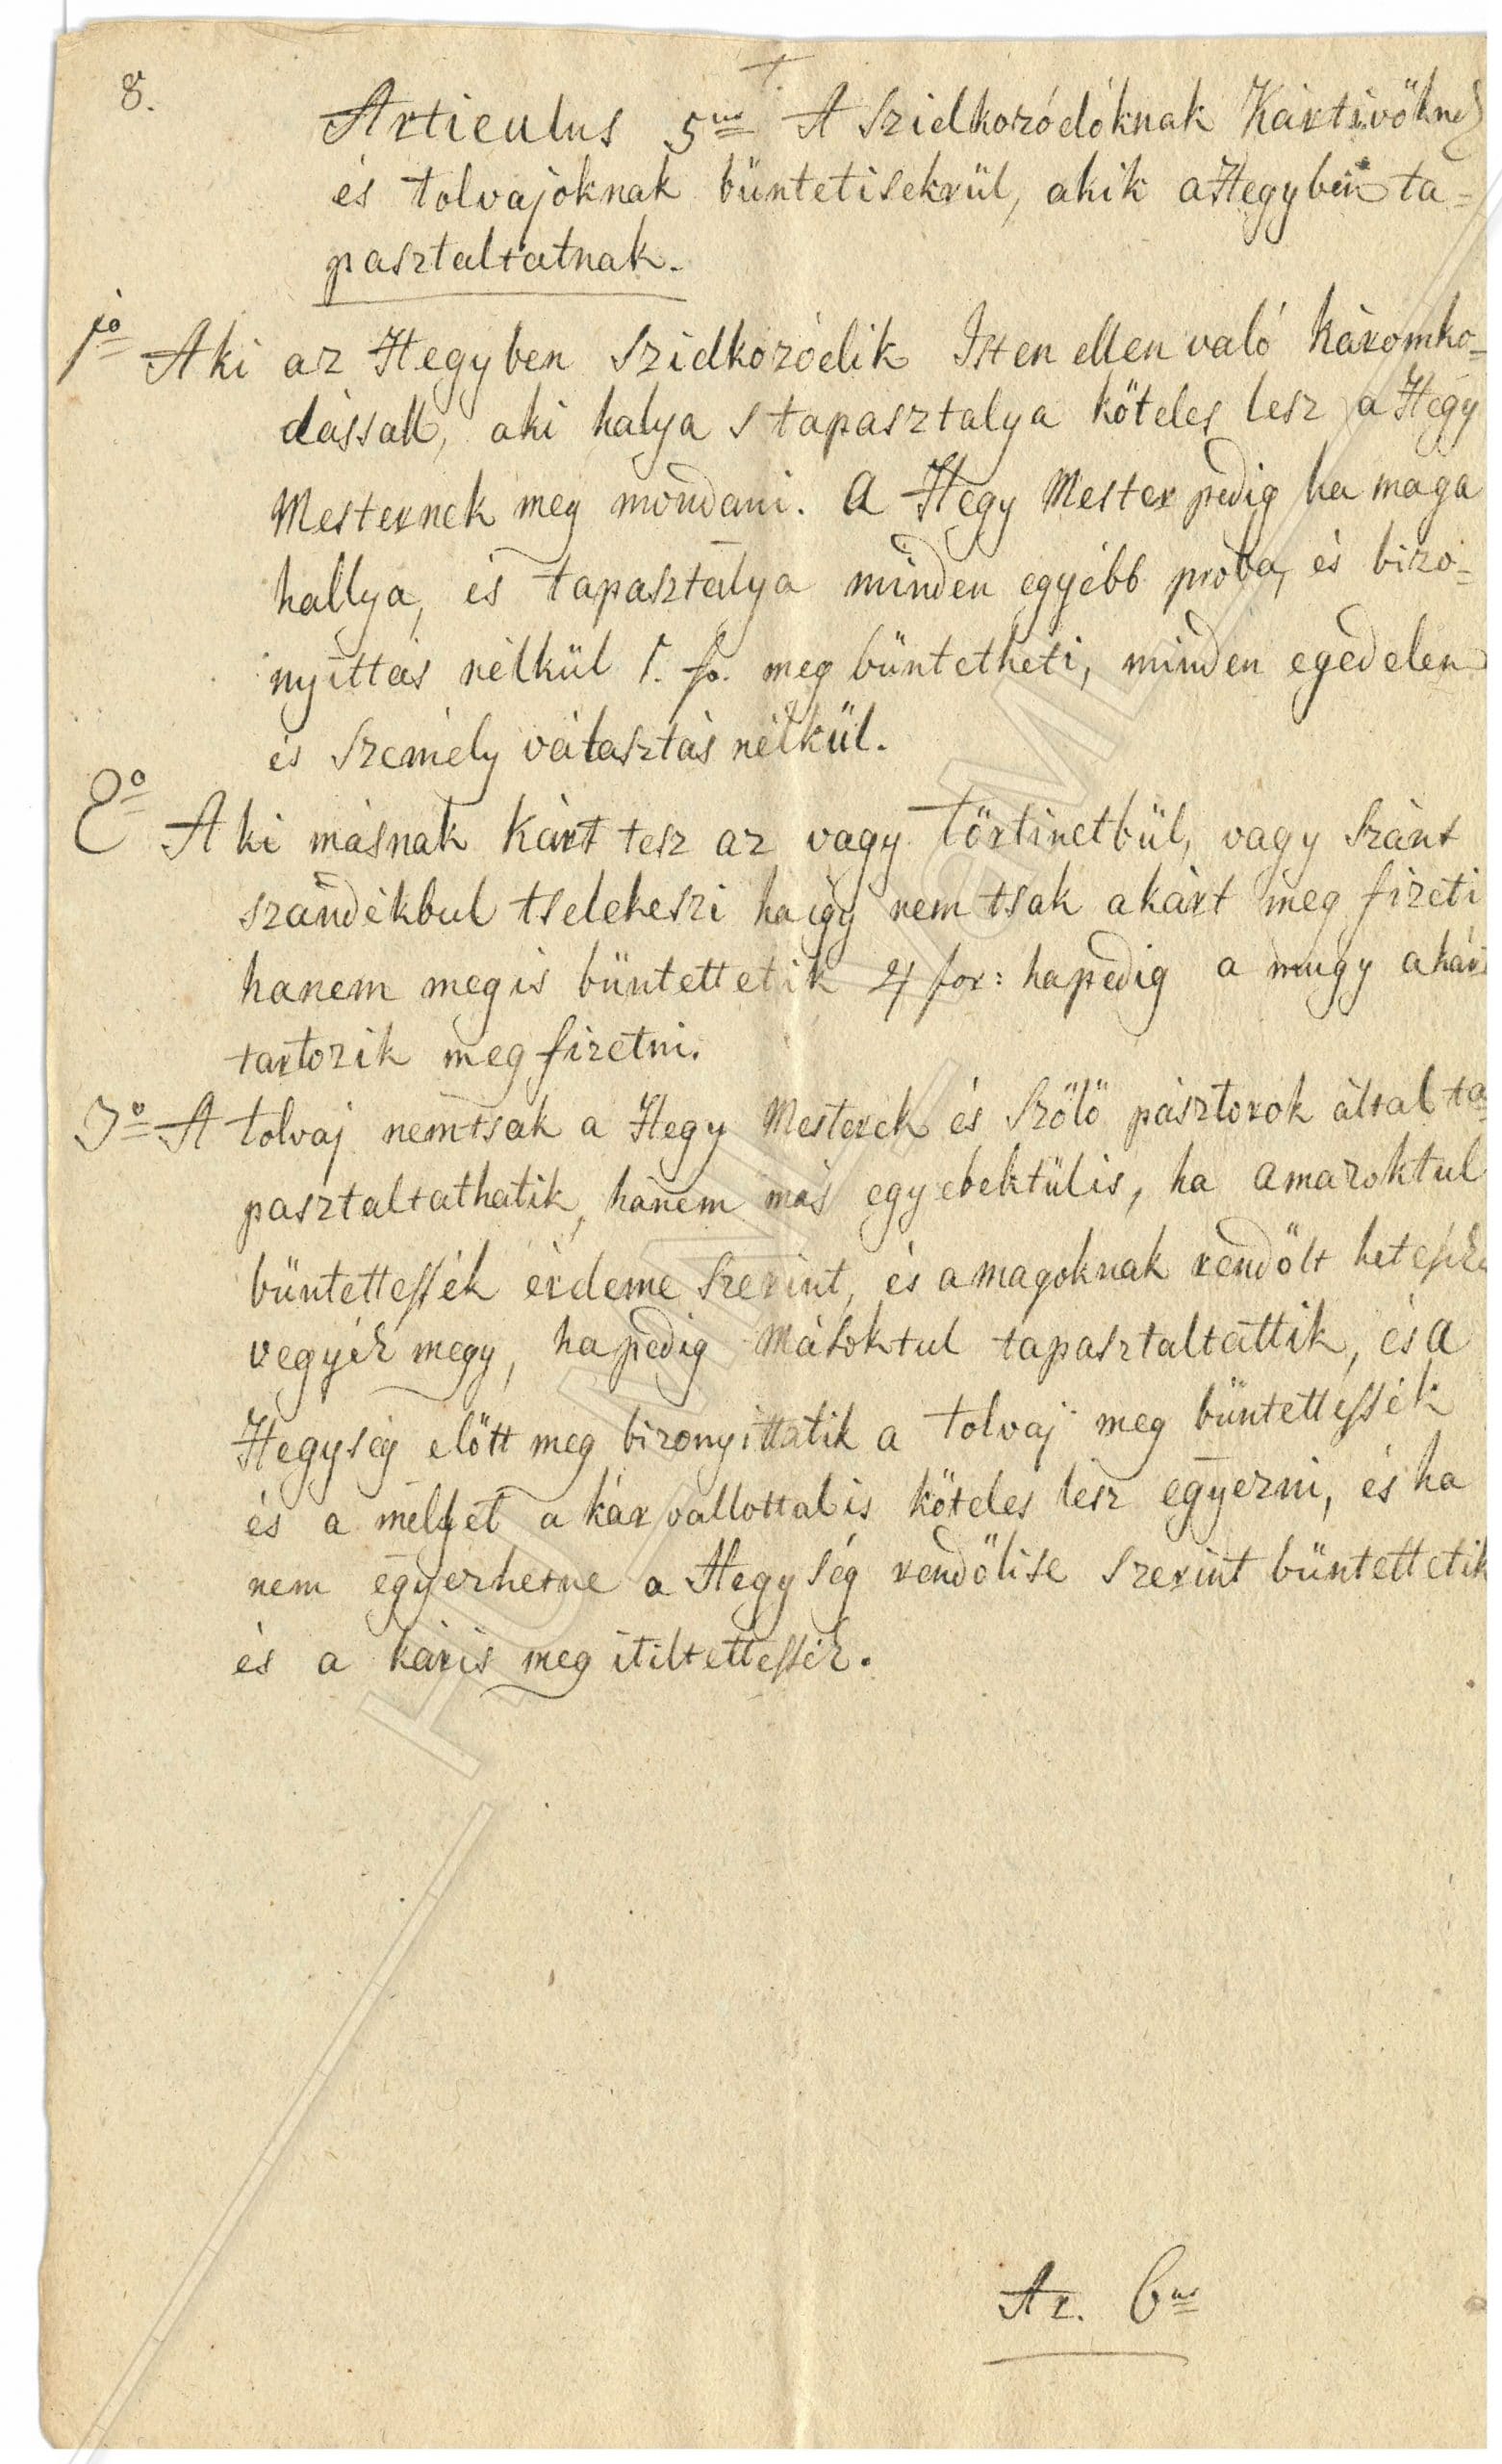 8.
Articulus 5us A Szidkozódóknak Kártivőknek
és tolvajoknak büntetisekrül, akik a Hegyben ta=
pasztaltatnak.
1o Aki az Hegyben Szidkozódik Isten ellen való káromko=
dással, aki halya s tapasztalya köteles lesz a Hegy
Mesternek meg mondani. A Hegy Mester pedig ha maga
hallya, és tapasztalya minden egyébb proba, és bizo=
nyittás nélkül 1. fo. meg büntetheti, minden egedelem
és Személy választás nélkül.
2o Aki másnak kárt tesz az vagy törtinetbül, vagy Szánt
szándékbul tselekeszi ha igy nem tsak a kárt meg fizeti
hanem meg is büntettetik 4 for: ha pedig a mugy a kárt
tartozik meg fizetni.
3o A tolvaj nemtsak a Hegy Mesterek és Szőlö pásztorok által ta=
pasztaltathatik, hanem más egyebektülis, ha amazoktul
büntettessék érdeme Szerint, és a magoknak rendölt
vegyék megy, ha pedig Másoktul tapasztaltattik, és a
Hegység előtt meg bizonyittatik a tolvaj meg büntettessék
és a mellyet a kárvallottal is köteles lesz egyezni, és ha
nem egyezhetne a Hegység rendölise Szerint büntettetik
és a káris meg itiltettessék.
Ar. 6us
HU_MNL_VeML